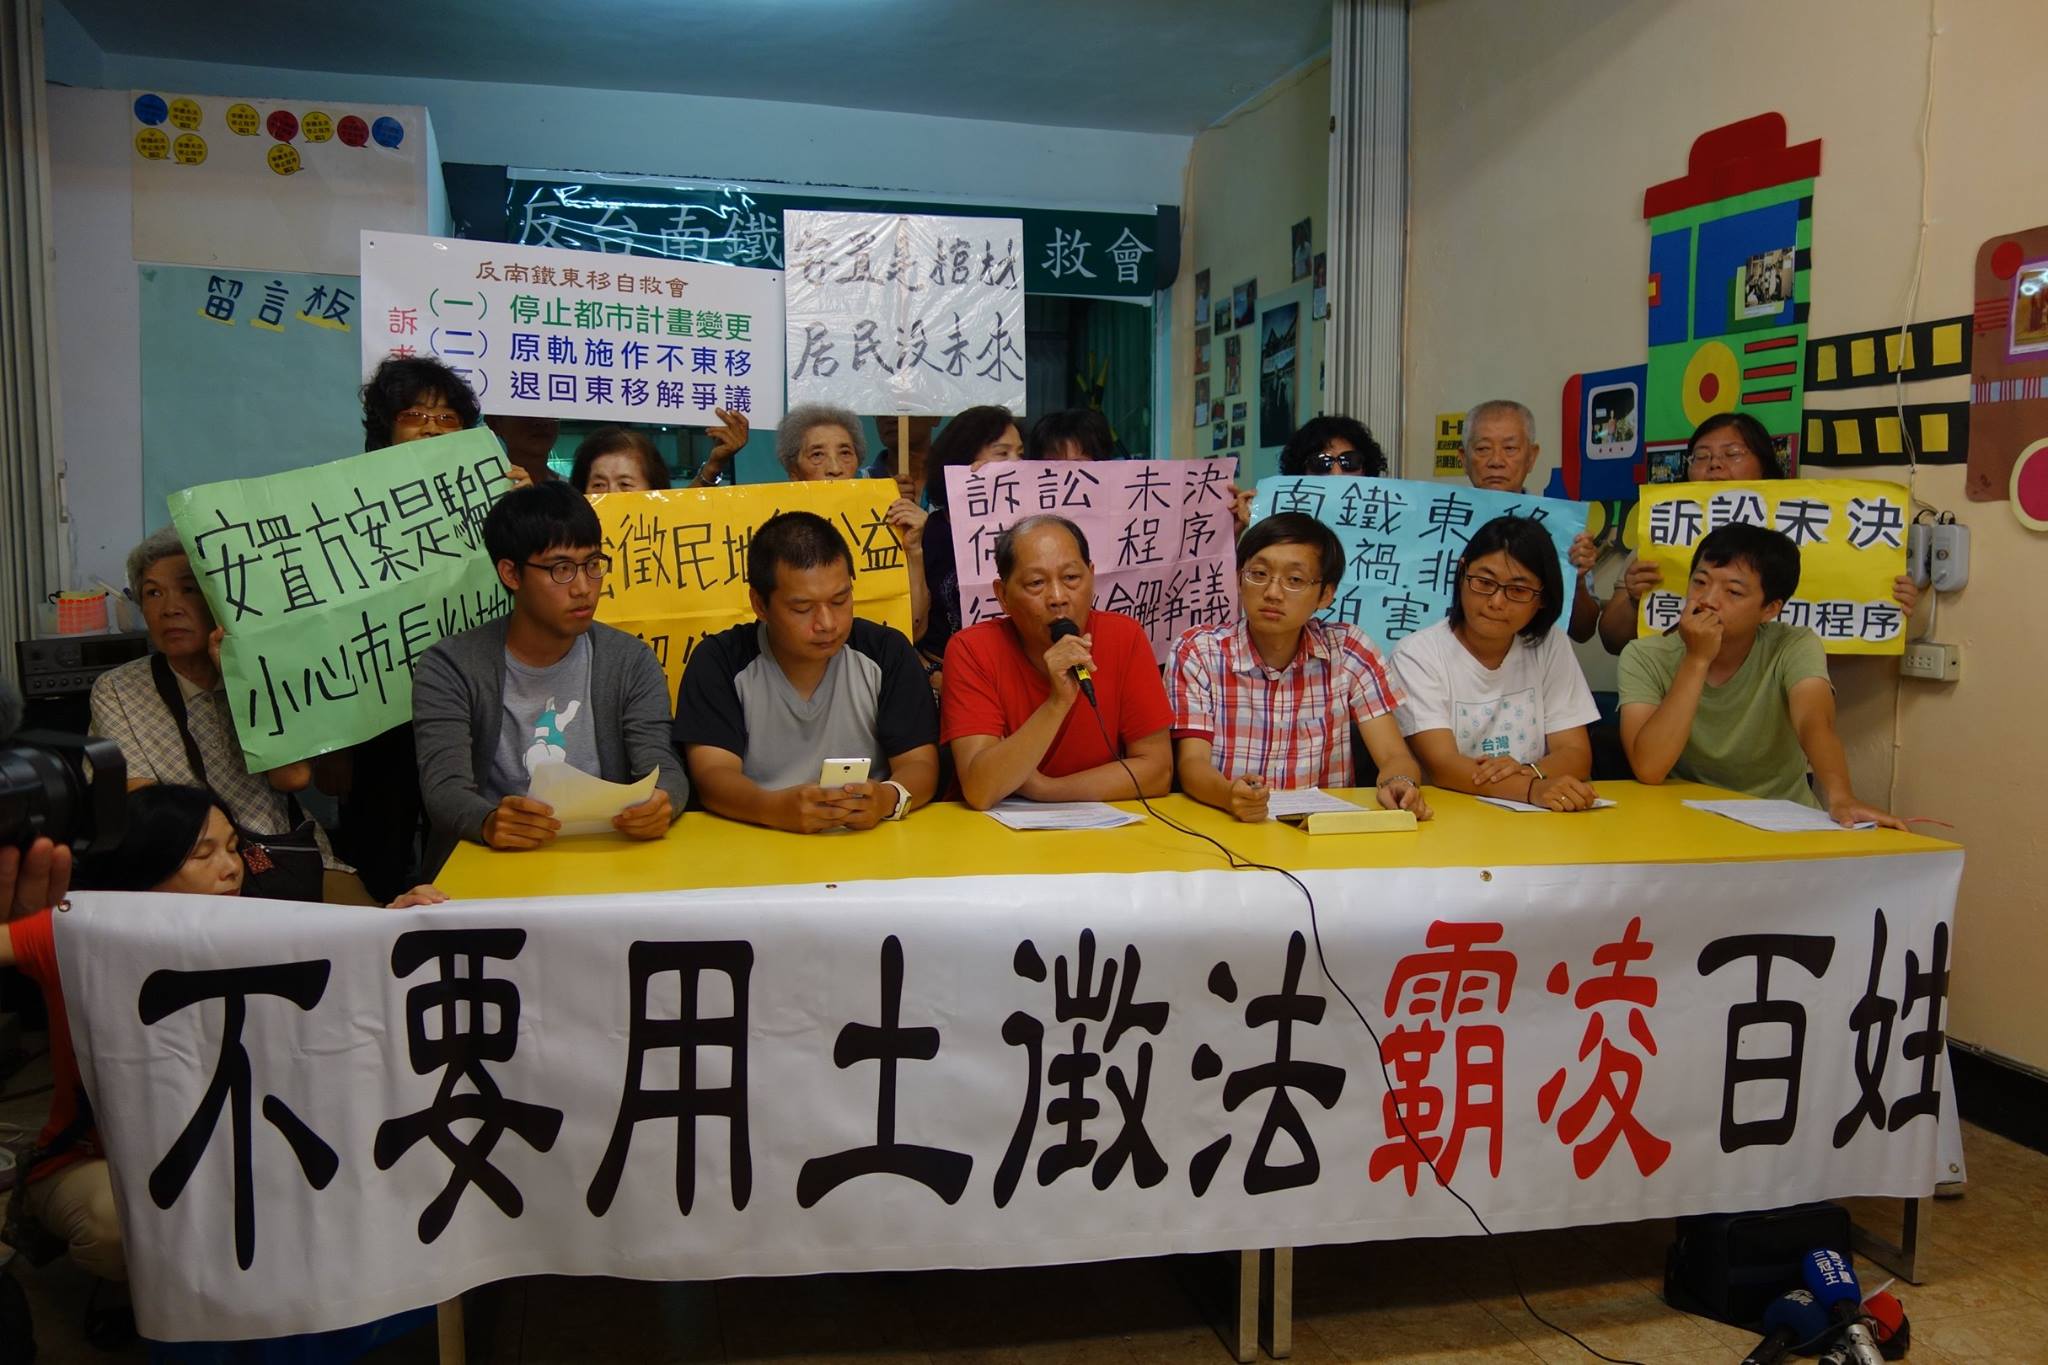 反台南鐵
救會
留言板
反南鐵東移自救會
訴
(一) 停止都市計畫變更
(二) 原軌施作不東移
退回東移解爭議
安置是棺材
居民沒未來
安置方案是騙局
小心市長炒地
徵民地
公益
訴訟未決
停 程序
會解爭議
南鐵東移
禍 非
迫害
訴訟未決
停 切程序
台灣
不要用土徵法霸凌百姓
三冠王